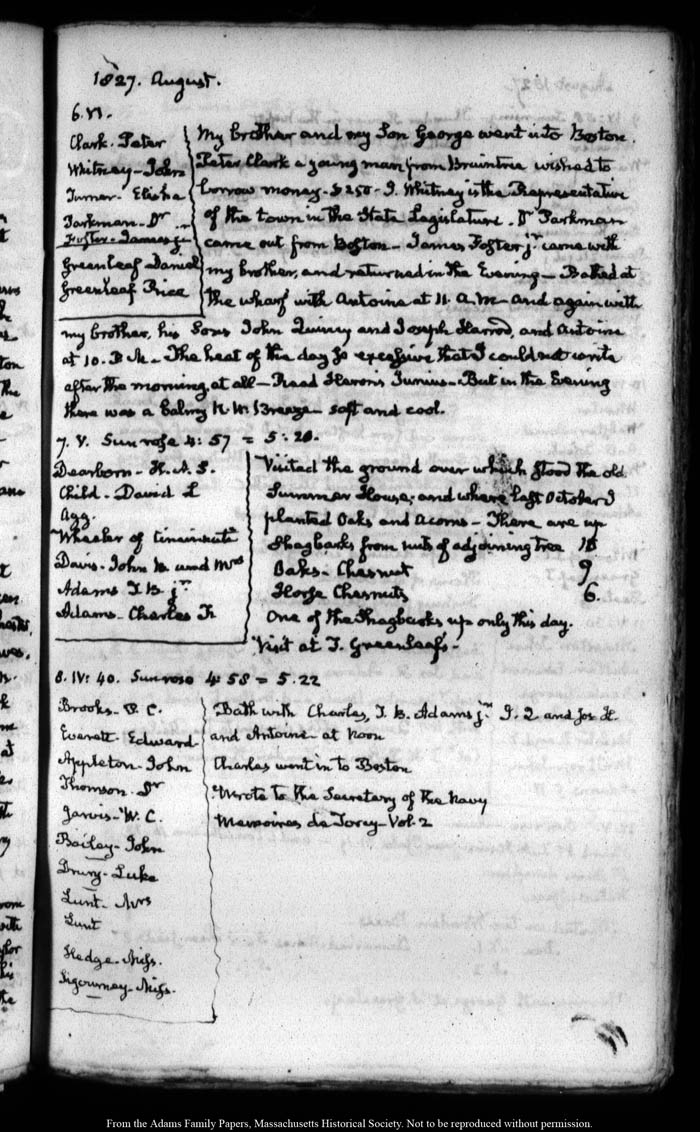 1827. August.
6. VI.
Clark. Peter
Whitney - John
Turner. Elisha
Parkman - Dr
Foster - James jr.
Greenleaf Daniel
Greenleaf Price
My brother and my Son George went into Boston.
Peter Clark a young man from Braintree wished to
borrow money - $250 - J. Whitney is the Representative
of the town in the State Legislature. Dr Parkman
came out from Boston - James Foster jr. came with
my brother, and returned in the Evening - Bathed at
the wharf with Antoine at 11. A.M. and again with
my brother, his Sons John Quincy and Joseph Harrod, and Antoine
at 10. P.M. - The heat of the day so excessive that I could not write
after the morning at all - Read Heron's Junius - But in the Evening
there was a balmy N.W. Breeze - soft and cool.
7. V. Sun rose 4: 57 = 5: 20.
Dearborn - H. A. S.
Child - David L
Agg.
Wheeler of Cincinnati
Davis - John B. and Mrs
Adams T. B. jr.
Adams - Charles F.
Visited the ground over which stood the old
Summer House; and where last October I
planted Oaks and Acorns - There are up
Shagbarks from nuts of adjoining tree 18
Oaks - Chesnut 9
Horse Chesnuts 6.
One of the Shagbarks up only this day.
Visit at T. Greenleaf's -
8. IV: 40. Sun rose 4: 58 = 5. 22
Brooks - P. C.
Everett. Edward
Appleton - John
Thomson - Dr
Jarvis - W. C.
Bailey - John
Drury - Luke
Lunt - Mrs
Lunt
Hedge - Miss.
Sigourney - Miss.
Bath with Charles, T. B. Adams jr. J. Q and Jos. H.
and Antoine - at Noon
Charles went in to Boston
Wrote to the Secretary of the Navy
Memoires de Torcy - Vol. 2
From the Adams Family Papers, Massachusetts Historical Society. Not to be reproduced without permission.